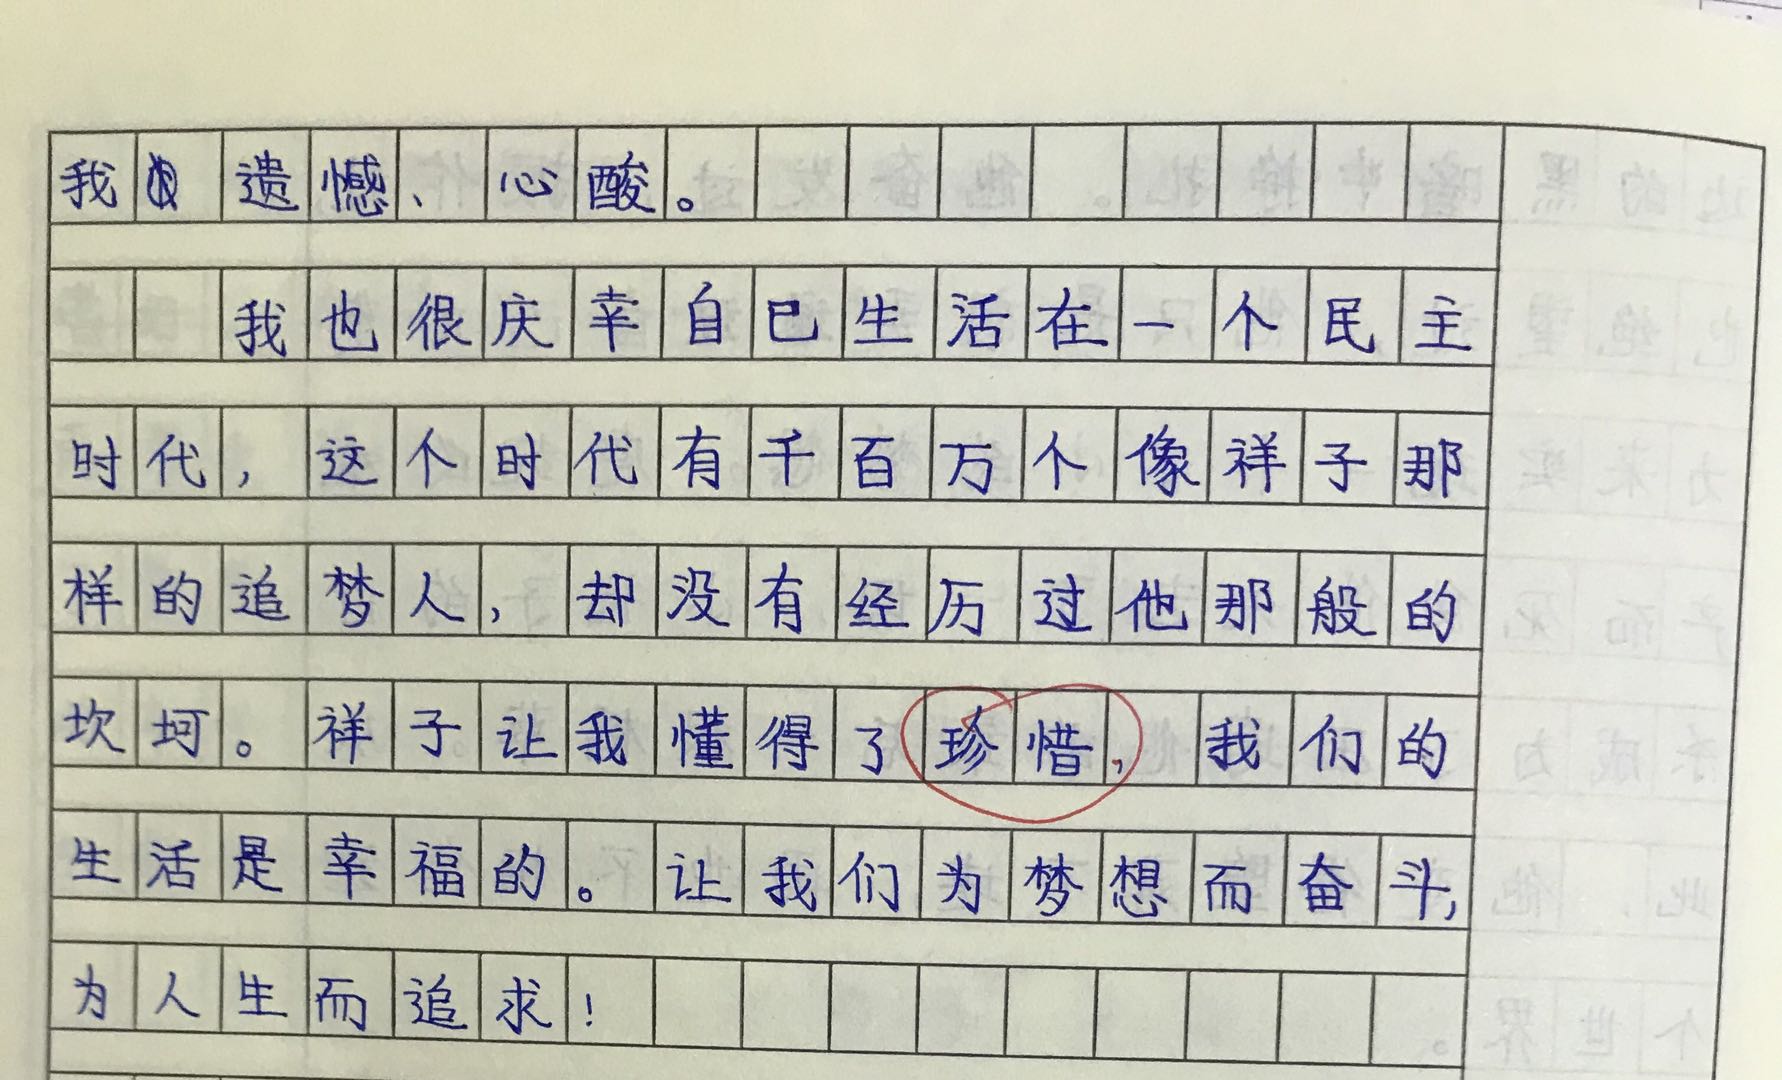 我遗憾、心酸。
我也很庆幸自己生活在一个民主
时代，这个时代有千百万个像祥子那
样的追梦人，却没有经历过他那般的
坎坷。祥子让我懂得了珍惜，我们的
生活是幸福的。让我们为梦想而奋斗，
为人生而追求！